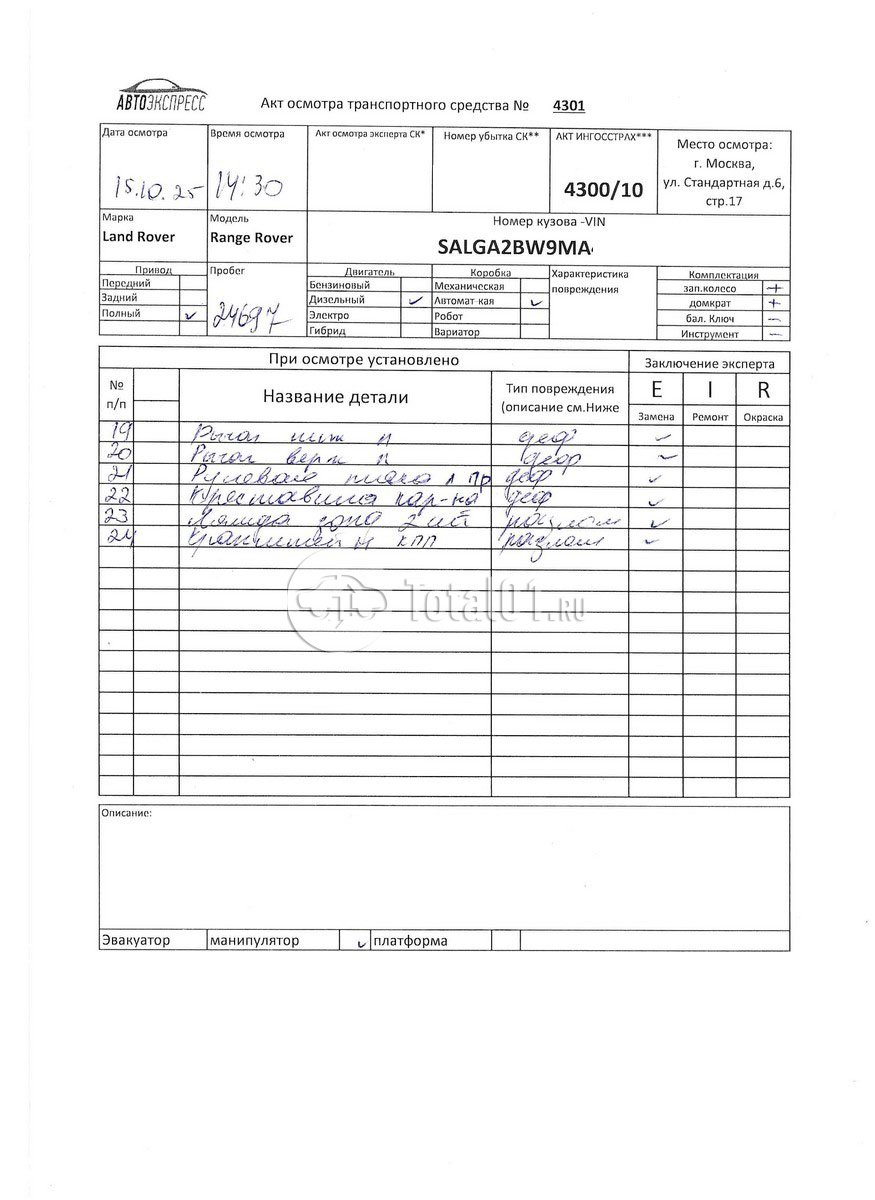 АВТОЭКСПРЕСС
Акт осмотра транспортного средства № 4301
Дата осмотра
15.10.25
Время осмотра
14:30
Акт осмотра эксперта СК*
Номер убытка СК**
АКТ ИНГОССТРАХ***
4300/10
Место осмотра:
г. Москва,
ул. Стандартная д.6,
стр.17
Марка
Land Rover
Модель
Range Rover
Номер кузова -VIN
SALGA2BW9MA
Привод
Передний
Задний
Полный ✓
Пробег
24697
Двигатель
Бензиновый
Дизельный ✓
Электро
Гибрид
Коробка
Механическая
Автомат-кая ✓
Робот
Вариатор
Характеристика
повреждения
Комплектация
зап.колесо +
домкрат +
бал. Ключ –
Инструмент –
При осмотре установлено
Заключение эксперта
№
п/п
Название детали
Тип повреждения
(описание см.Ниже
E I R
Замена Ремонт Окраска
19 Рычаг ниж л деф ✓
20 Рычаг верх л дефор ✓
21 Рулевая л пр деф ✓
22 кар-на деф ✓
23 Лямда зонд 2 ✓
24 КПП разлом ✓
Total01.RU
Описание:
Эвакуатор манипулятор ✓ платформа